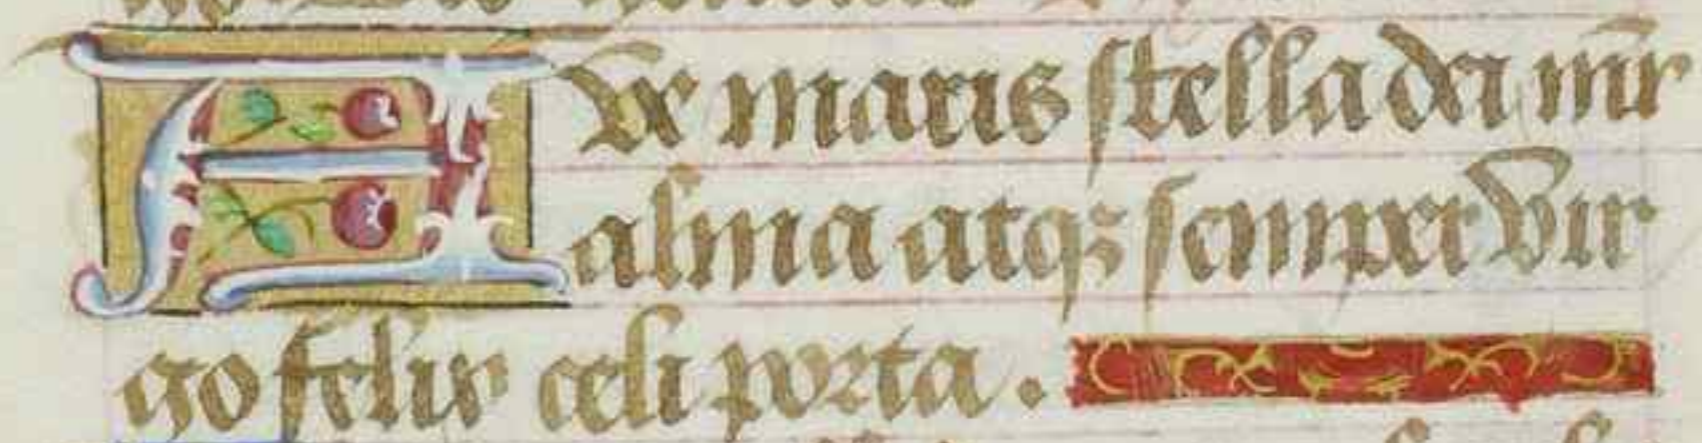 Ave maris stella dei mr̄
alma atq; semper vir
go felix celi porta.